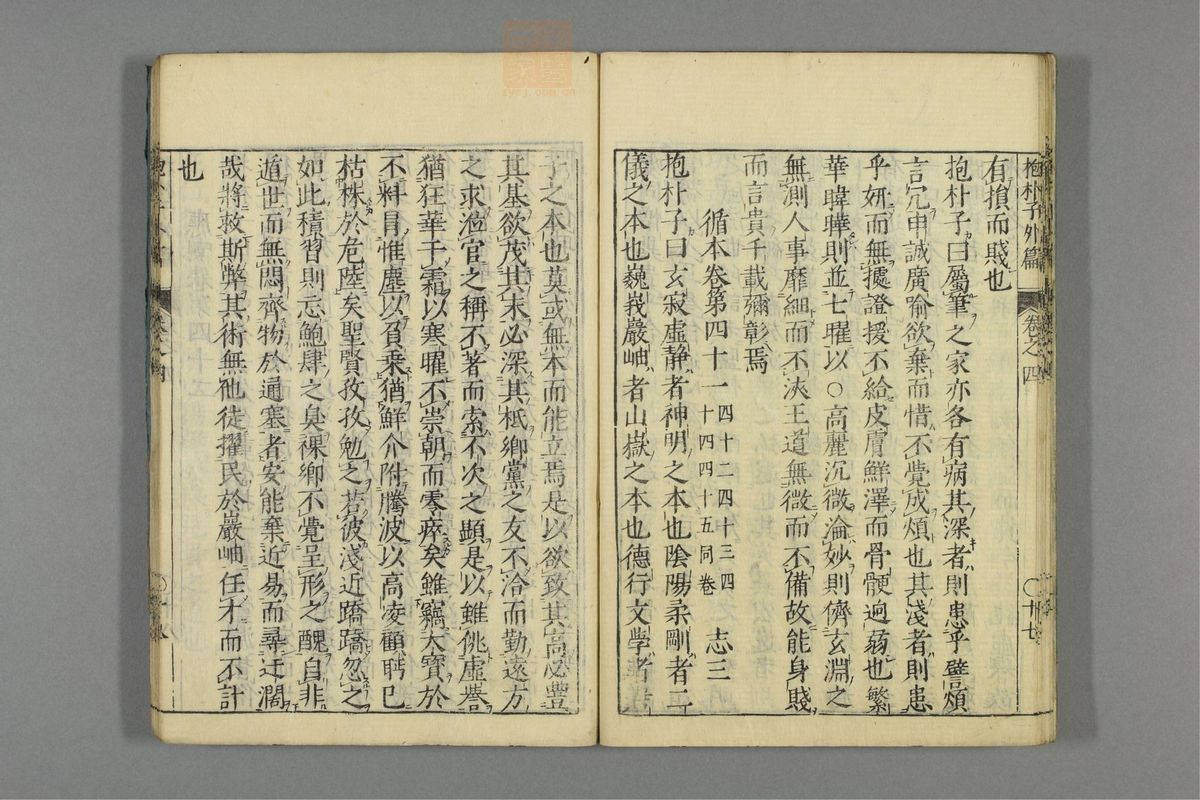 抱朴子外篇 卷之四 〇卅七
有損而賤也
抱朴子曰屬筆之家亦各有病其深者則患乎譬煩
言冗申誠廣喻欲棄而惜不覺成煩也其淺者則患
乎妍而無據證援不給皮膚鮮澤而骨骾迥弱也繁
華暐曄則並七曜以〇高麗沉微淪妙則儕玄淵之
無測人事靡細而不浹王道無微而不備故能身賤
而言貴千載彌彰焉
循本卷第四十一 四十二四十三四十四四十五同卷 志三
抱朴子曰玄寂虛靜者神明之本也陰陽柔剛者二
儀之本也巍峩巖岫者山嶽之本也德行文學者君
子之本也莫或無本而能立焉是以欲致其高必豐
其基欲茂其末必深其柢鄉黨之友不洽而勤遠方
之求涖官之稱不著而索不次之顯是以雖佻虛譽
猶狂華干霜以寒曜不崇朝而零瘁矣雖竊大寶於
不料冒惟塵以負乗猶鮮介附騰波以高凌顧眄已
枯株於危陸矣聖賢孜孜勉之若彼淺近蹻蹻忽之
如此積習則忘鮑肆之臭裸鄉不覺呈形之醜自非
遁世而無悶齊物於通塞者安能棄近易而尋迂濶
哉將救斯弊其術無他徒擢民於巖岫任才而不計
也